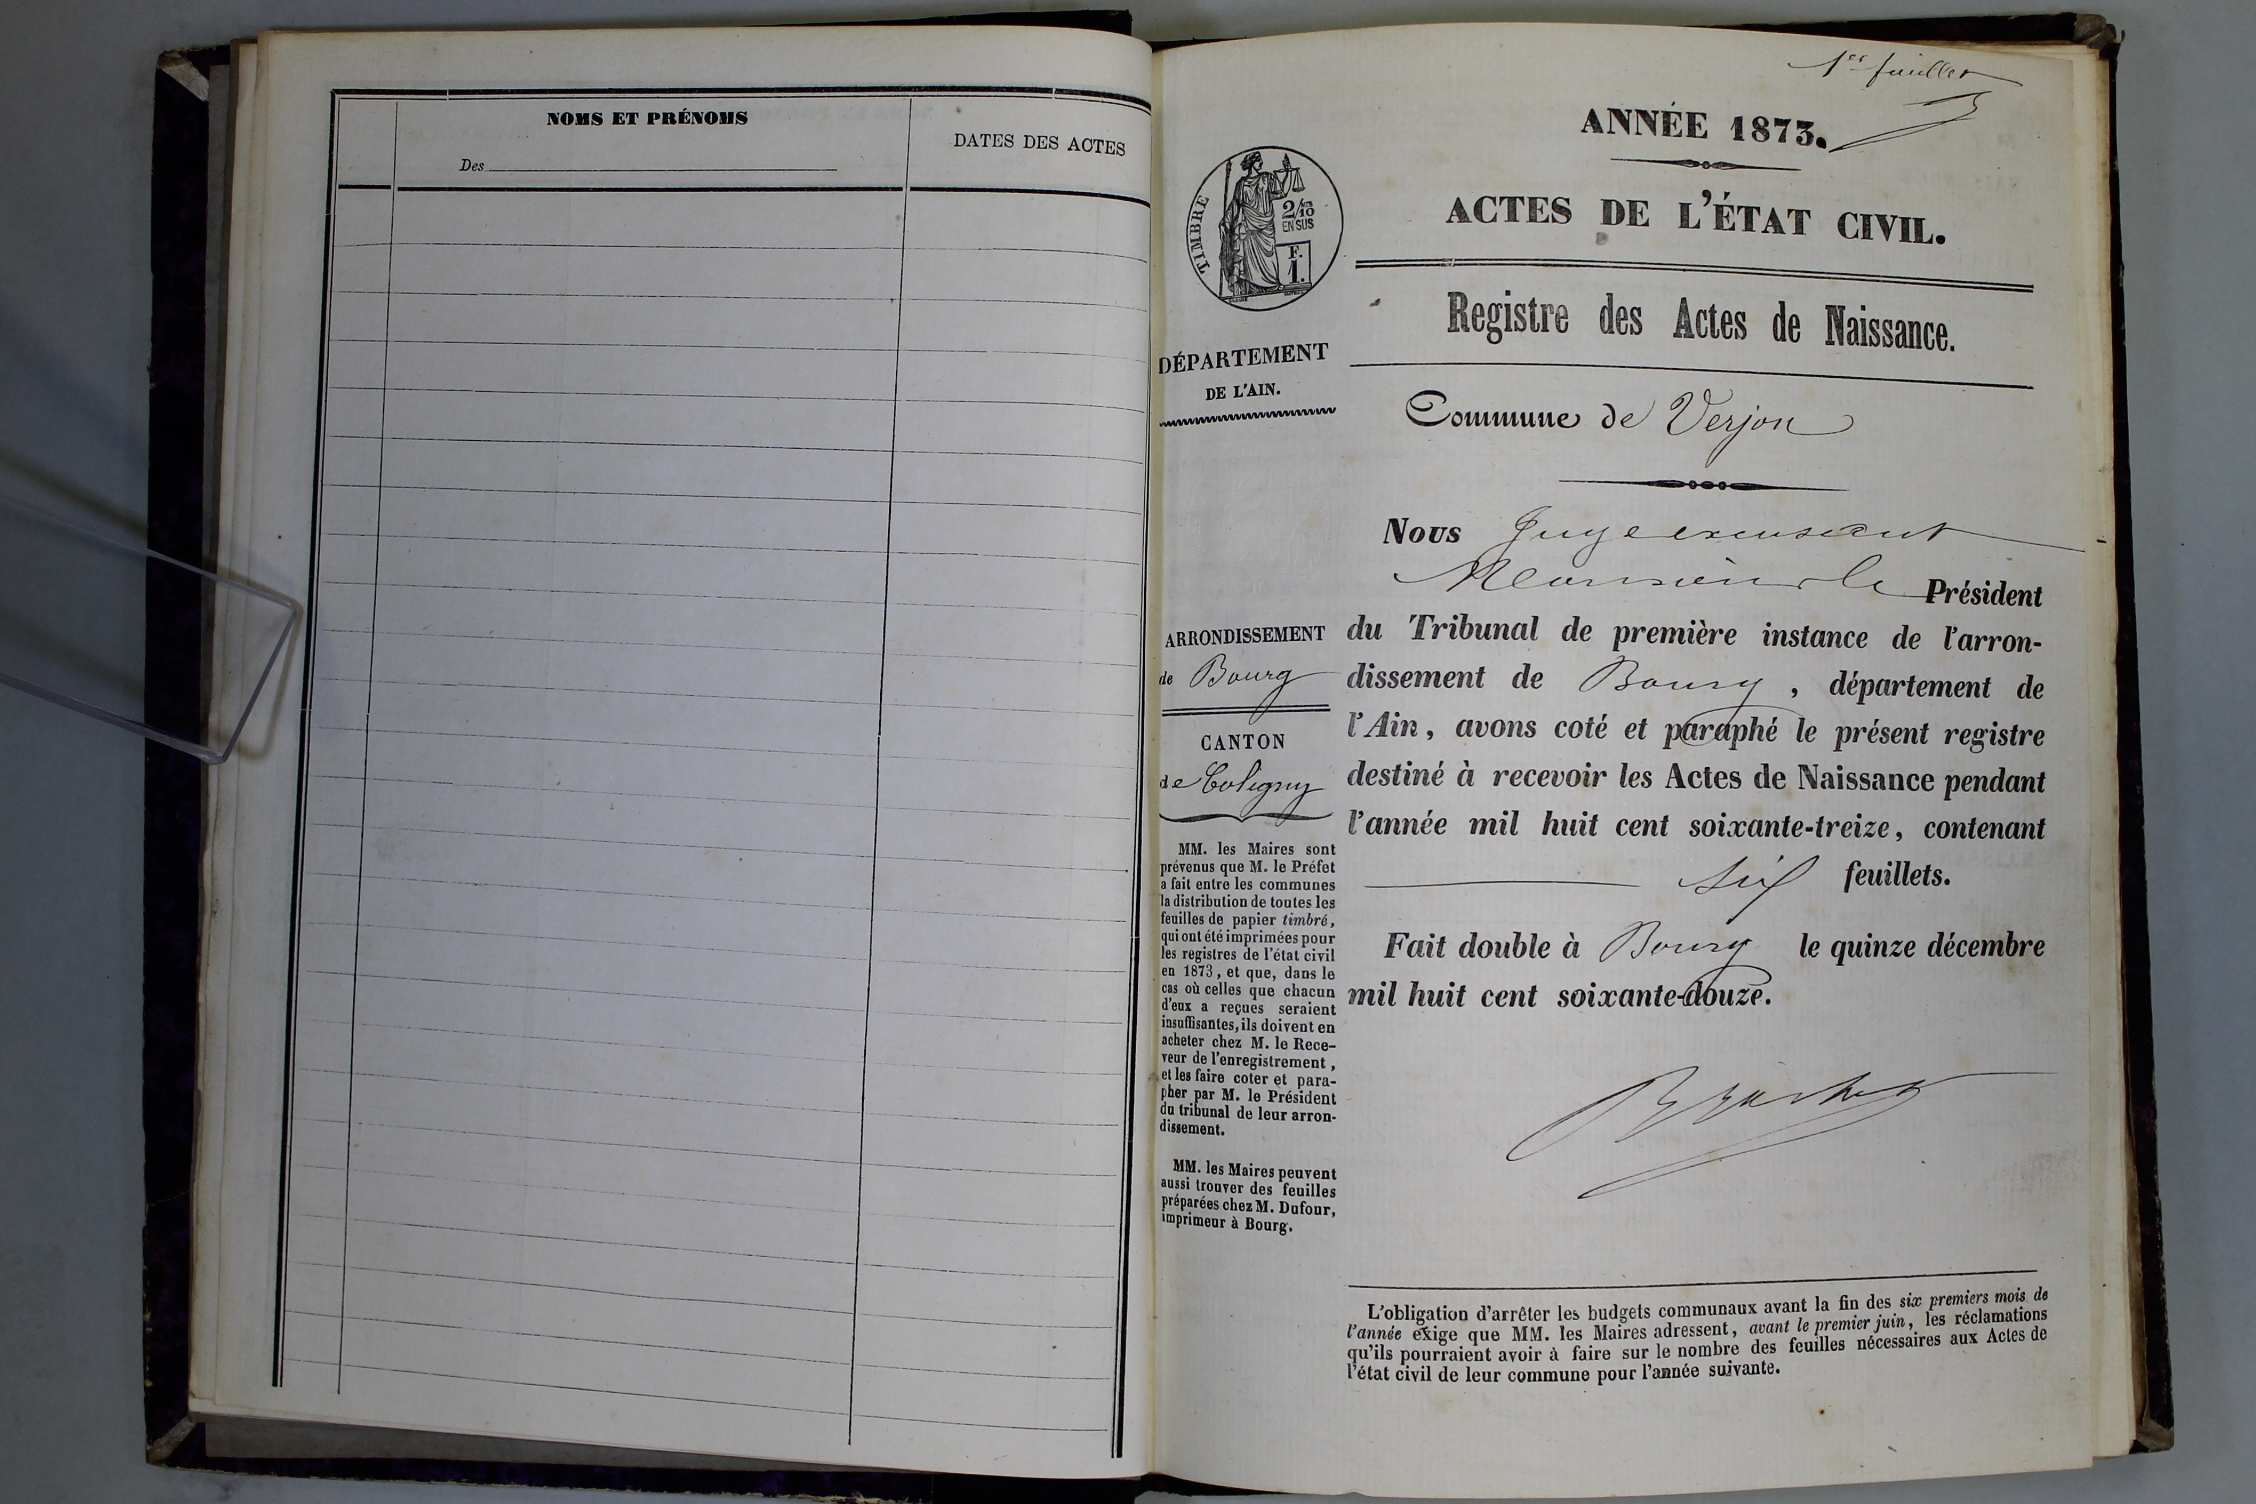 NOMS ET PRÉNOMS
Des
DATES DES ACTES
1er feuillet
ANNÉE 1873.
ACTES DE L'ÉTAT CIVIL.
TIMBRE
2/10
EN SUS
F.
1.
Registre des Actes de Naissance.
DÉPARTEMENT
DE L'AIN.
Commune de Verjon
Nous Juge excusant
Monsieur le Président
ARRONDISSEMENT
de Bourg
CANTON
de Coligny
MM. les Maires sont
prévenus que M. le Préfet
a fait entre les communes
la distribution de toutes les
feuilles de papier timbré,
qui ont été imprimées pour
les registres de l'état civil
en 1873, et que, dans le
cas où celles que chacun
d'eux a reçues seraient
insuffisantes, ils doivent en
acheter chez M. le Rece-
veur de l'enregistrement,
et les faire coter et para-
pher par M. le Président
du tribunal de leur arron-
dissement.
MM. les Maires peuvent
aussi trouver des feuilles
préparées chez M. Dufour,
imprimeur à Bourg.
du Tribunal de première instance de l'arron-
dissement de Bourg, département de
l'Ain, avons coté et paraphé le présent registre
destiné à recevoir les Actes de Naissance pendant
l'année mil huit cent soixante-treize, contenant
six feuillets.
Fait double à Bourg le quinze décembre
mil huit cent soixante-douze.
L'obligation d'arrêter les budgets communaux avant la fin des six premiers mois de
l'année exige que MM. les Maires adressent, avant le premier juin, les réclamations
qu'ils pourraient avoir à faire sur le nombre des feuilles nécessaires aux Actes de
l'état civil de leur commune pour l'année suivante.